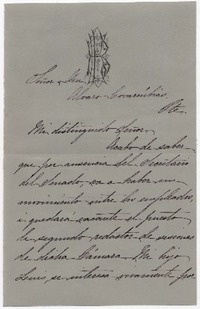 Señor Don
Alvaro Covarrúbias
Pte.
Mi distinguido Señor,
Acabo de saber
que por ausencia del Secretario
del Senado, va a haber un
movimiento entre los empleados,
i quedará vacante el puesto
de segundo redactor de sesiones
de dicha Cámara. Mi hijo
Luis, se interesa vivamente por